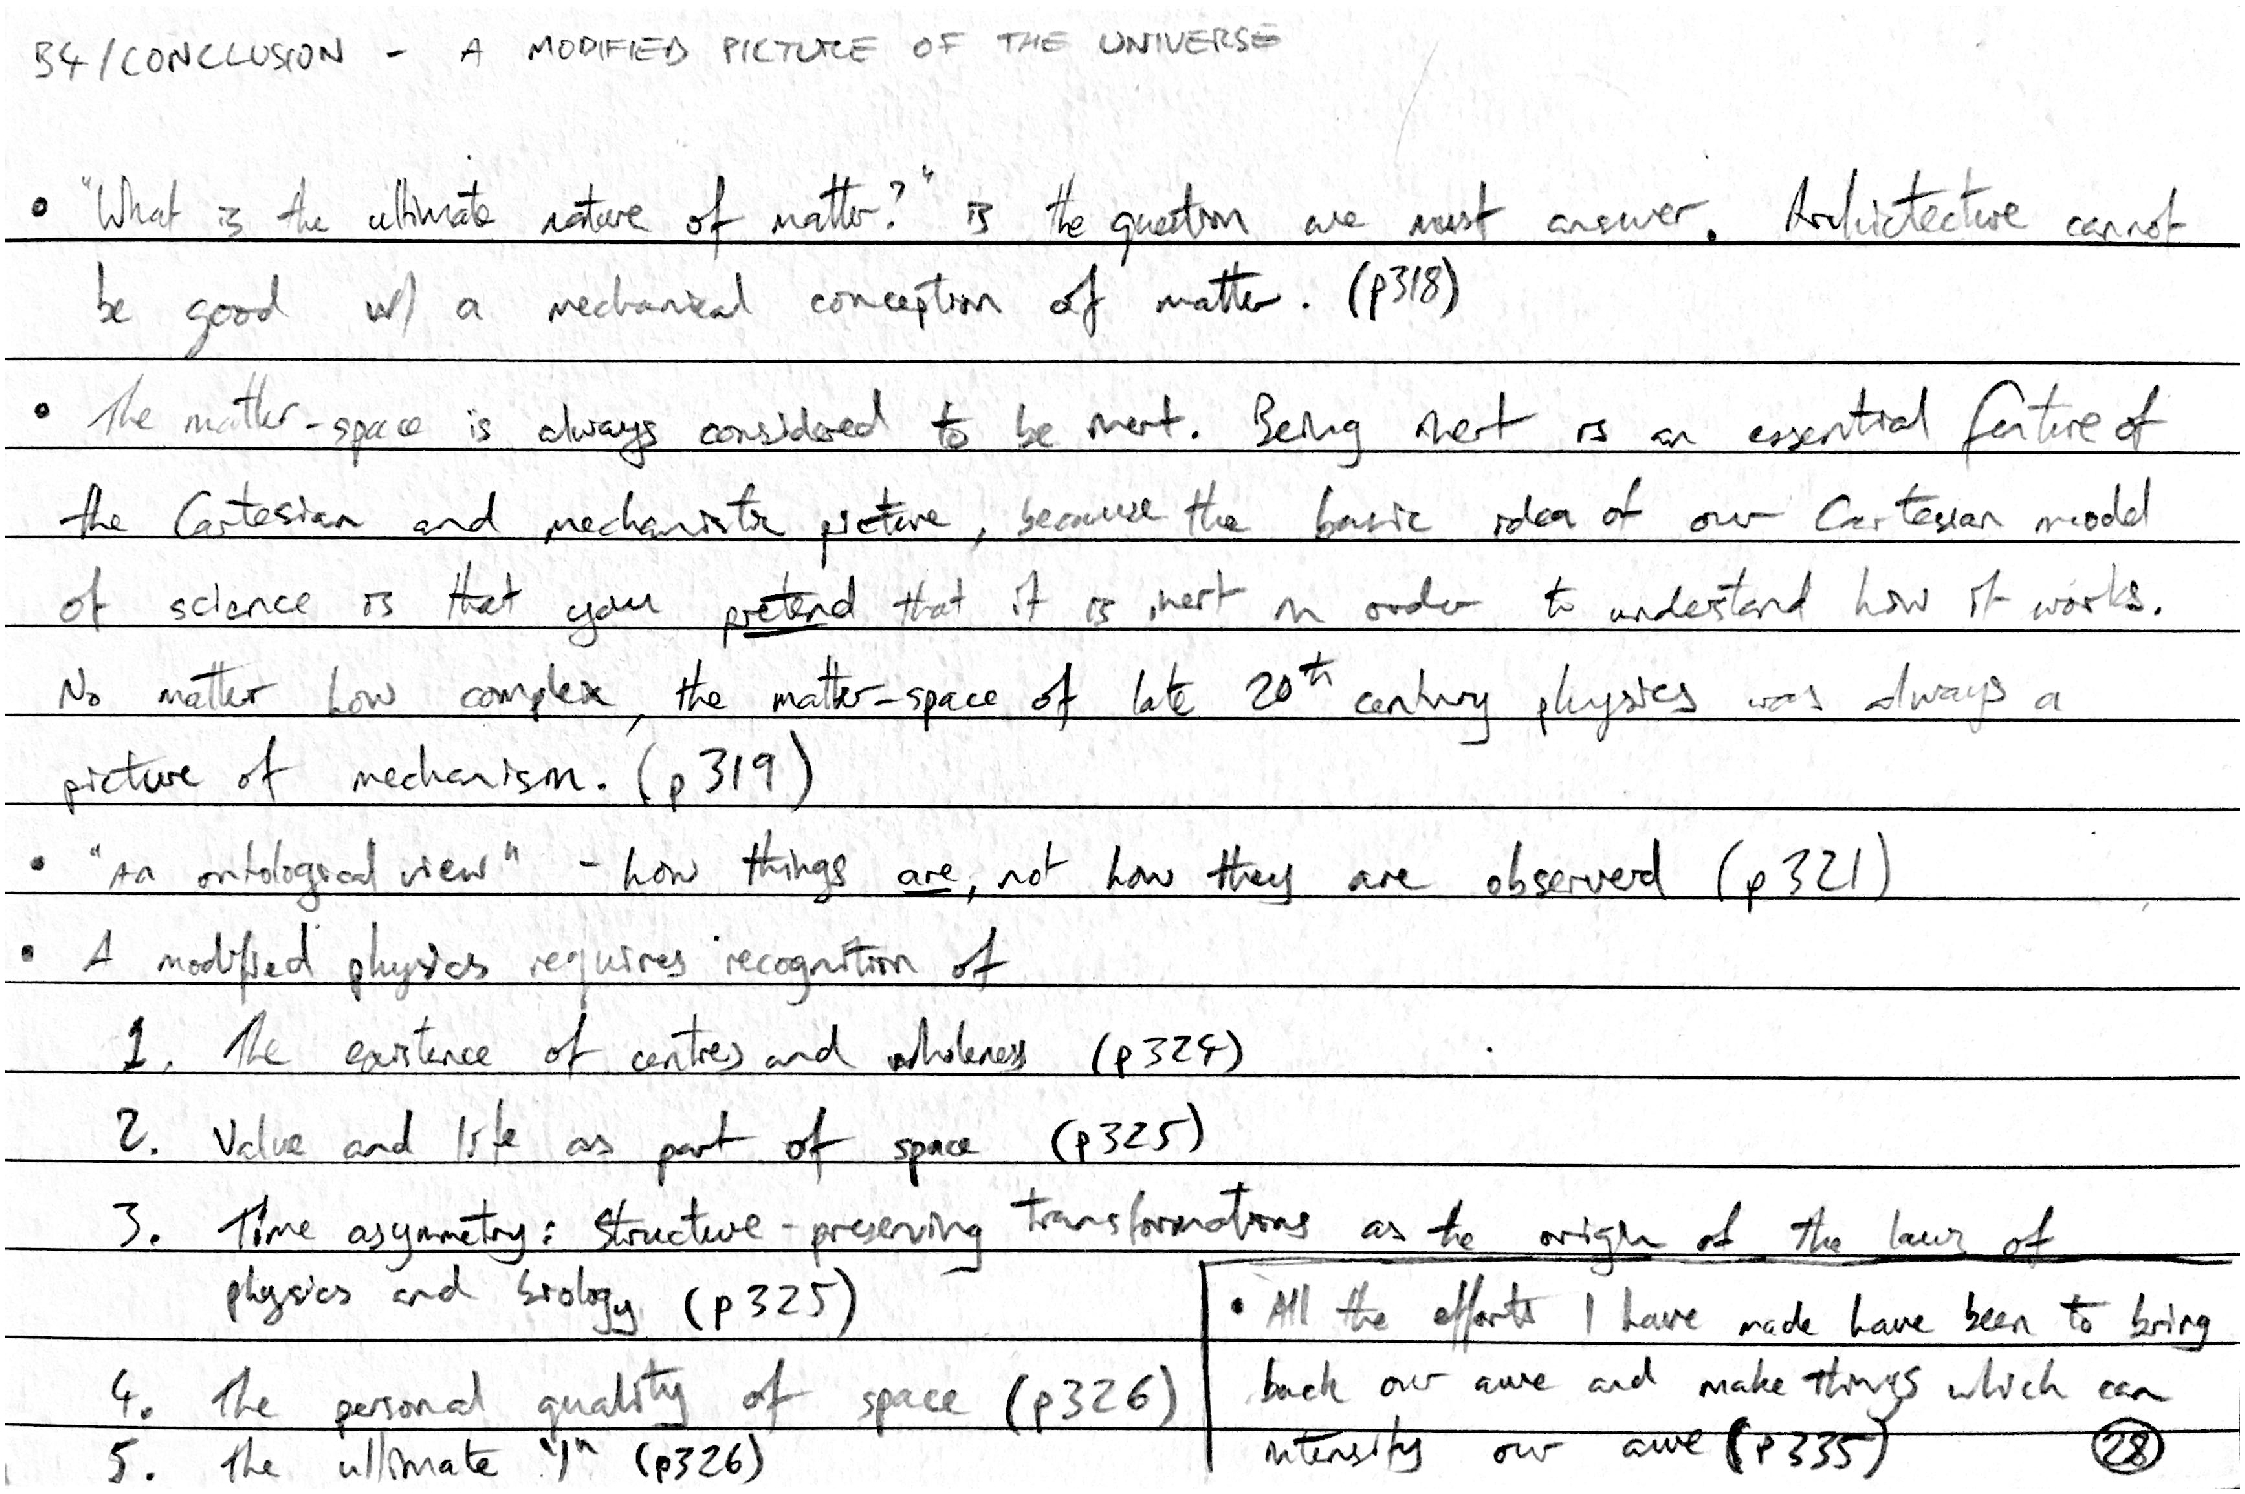 B4/CONCLUSION - A MODIFIED PICTURE OF THE UNIVERSE
• "What is the ultimate nature of matter?" is the question we must answer. Archictecture cannot
be good w/ a mechanical conception of matter. (p318)
• The matter-space is always considered to be inert. Being inert is an essential feature of
the Cartesian and mechanistic picture, because the basic idea of our Cartesian model
of science is that you pretend that it is inert in order to understand how it works.
No matter how complex, the matter-space of late 20th century physics was always a
picture of mechanism. (p319)
• "An ontological view" - how things are, not how they are observed (p321)
• A modified physics requires recognition of
1. The existence of centres and wholeness (p324)
2. Value and life as part of space (p325)
3. Time asymmetry: Structure-preserving transformations as the origin of the laws of
physics and biology (p325)
4. The personal quality of space (p326)
5. The ultimate "I" (p326)
• All the efforts I have made have been to bring
back our awe and make things which can
intensify our awe (p335)
28